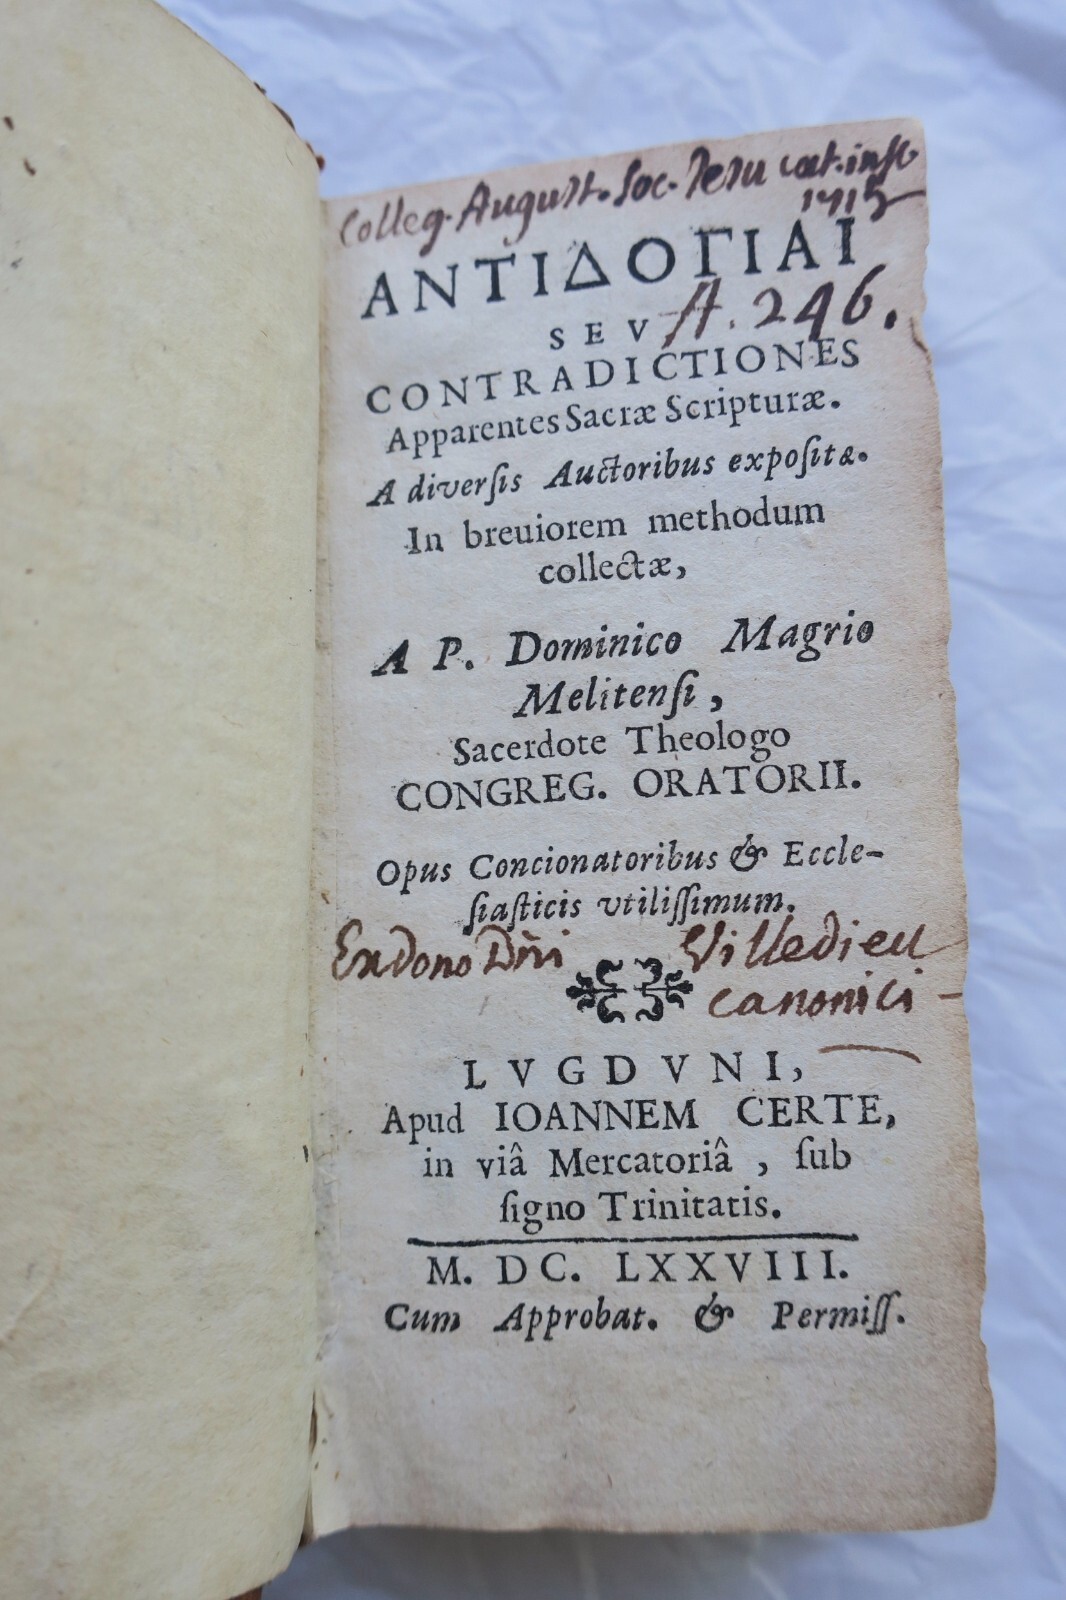 Colleg. August. Soc. Jesu cat. insc
1715
ΑΝΤΙΔΟΓΙΑΙ
SEV
A. 246.
CONTRADICTIONES
Apparentes Sacræ Scripturæ.
A diverſis Auctoribus expoſitæ.
In breuiorem methodum
collectæ,
A P. Dominico Magrio
Melitenſi,
Sacerdote Theologo
CONGREG. ORATORII.
Opus Concionatoribus & Eccle-
ſiaſticis vtiliſſimum.
Ex dono Dn̄i Villedieu
canonici
LVGDVNI,
Apud IOANNEM CERTE,
in viâ Mercatoriâ, ſub
ſigno Trinitatis.
M. DC. LXXVIII.
Cum Approbat. & Permiſſ.